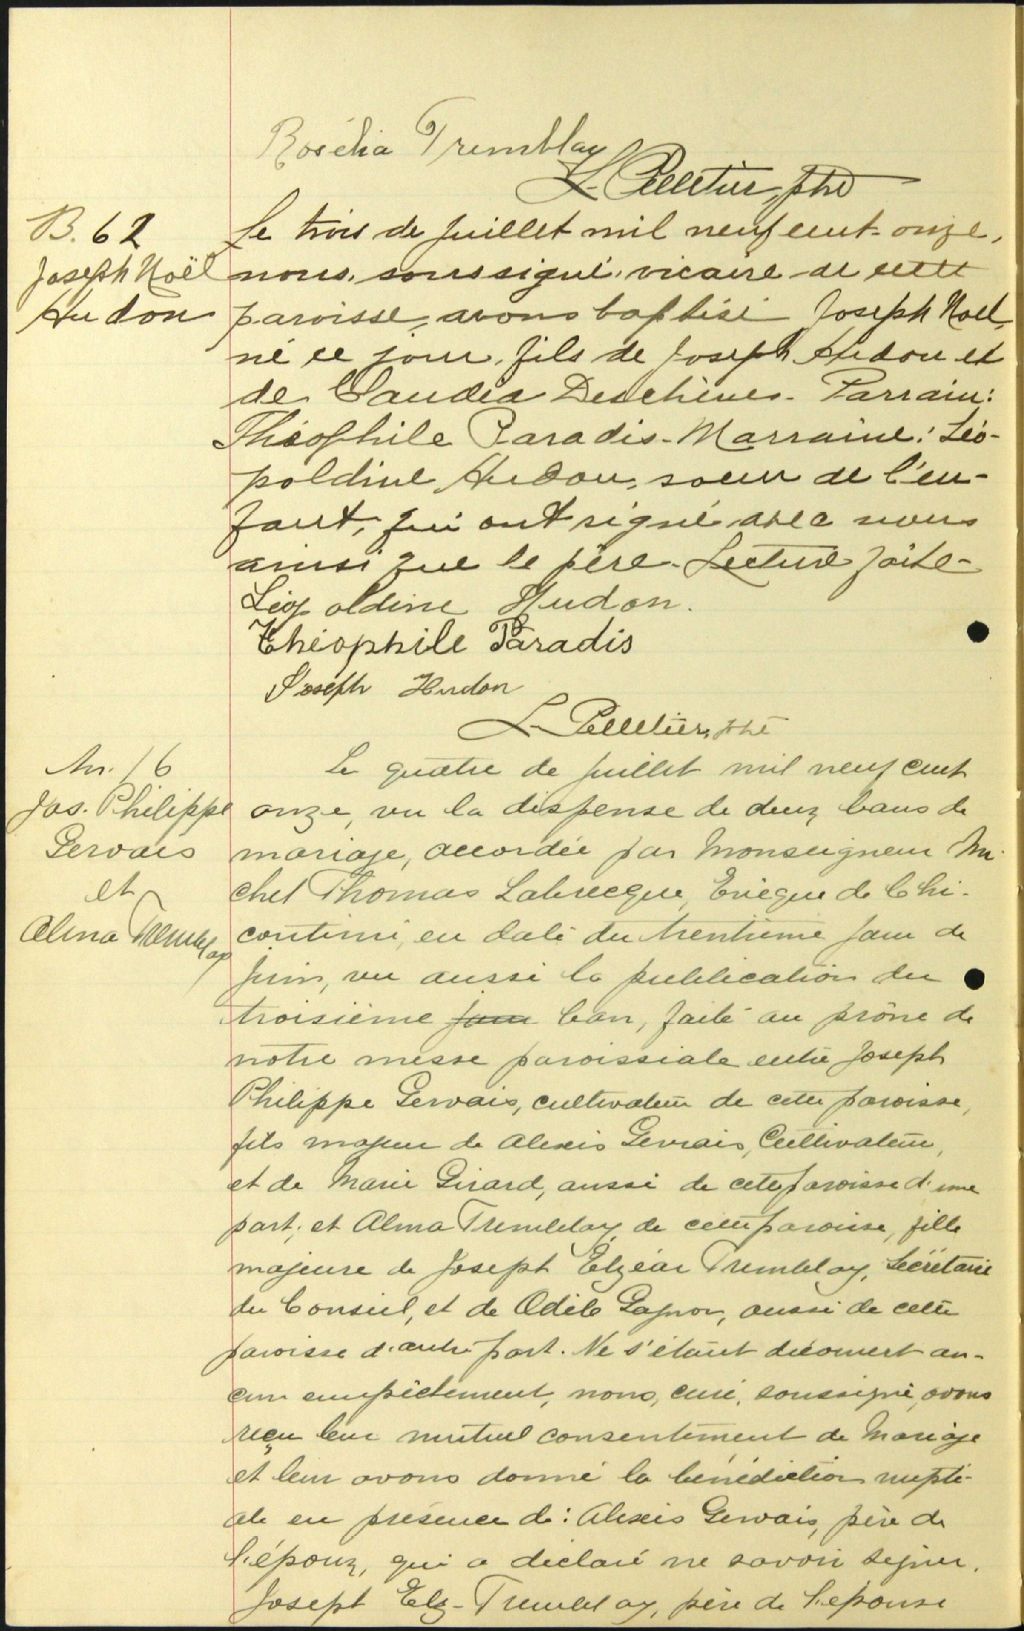 Rosélia Tremblay
L. Pelletier, ptre
B. 62
Joseph Noël
Hudon
Le trois de juillet mil neuf cent onze,
nous, soussigné, vicaire de cette
paroisse, avons baptisé Joseph Noël,
né ce jour, fils de Joseph Hudon et
de Claudia Deschènes. Parrain:
Théophile Paradis. Marraine: Léo-
poldine Hudon, soeur de l'en-
fant, qui ont signé avec nous
ainsi que le père. Lecture faite.
Léopoldine Hudon.
Théophile Paradis
Joseph Hudon
L. Pelletier, ptre
M. 16
Jos. Philippe
Gervais
et
Alma Tremblay
Le quatre de juillet mil neuf cent
onze, vu la dispense de deux bans de
mariage, accordée par Monseigneur Mi-
chel Thomas Labrecque, Evêque de Chi-
coutimi, en date du trentième jour de
juin, vu aussi la publication du
troisième jour ban, faite au prône de
notre messe paroissiale entre Joseph
Philippe Gervais, cultivateur de cette paroisse,
fils majeur de Alexis Gervais, Cultivateur,
et de Marie Girard, aussi de cette paroisse d'une
part; et Alma Tremblay de cette paroisse, fille
majeure de Joseph Elzéar Tremblay, Secrétaire
du Conseil, et de Odile Gagnon, aussi de cette
paroisse d'autre part. Ne s'étant découvert au-
cun empiètement, nous, curé, soussigné, avons
reçu leur mutuel consentement de Mariage
et leur avons donné la bénédiction nupti-
ale en présence de: Alexis Gervais, père de
l'époux, qui a déclaré ne savoir signer.
Joseph Elz- Tremblay, père de l'épouse